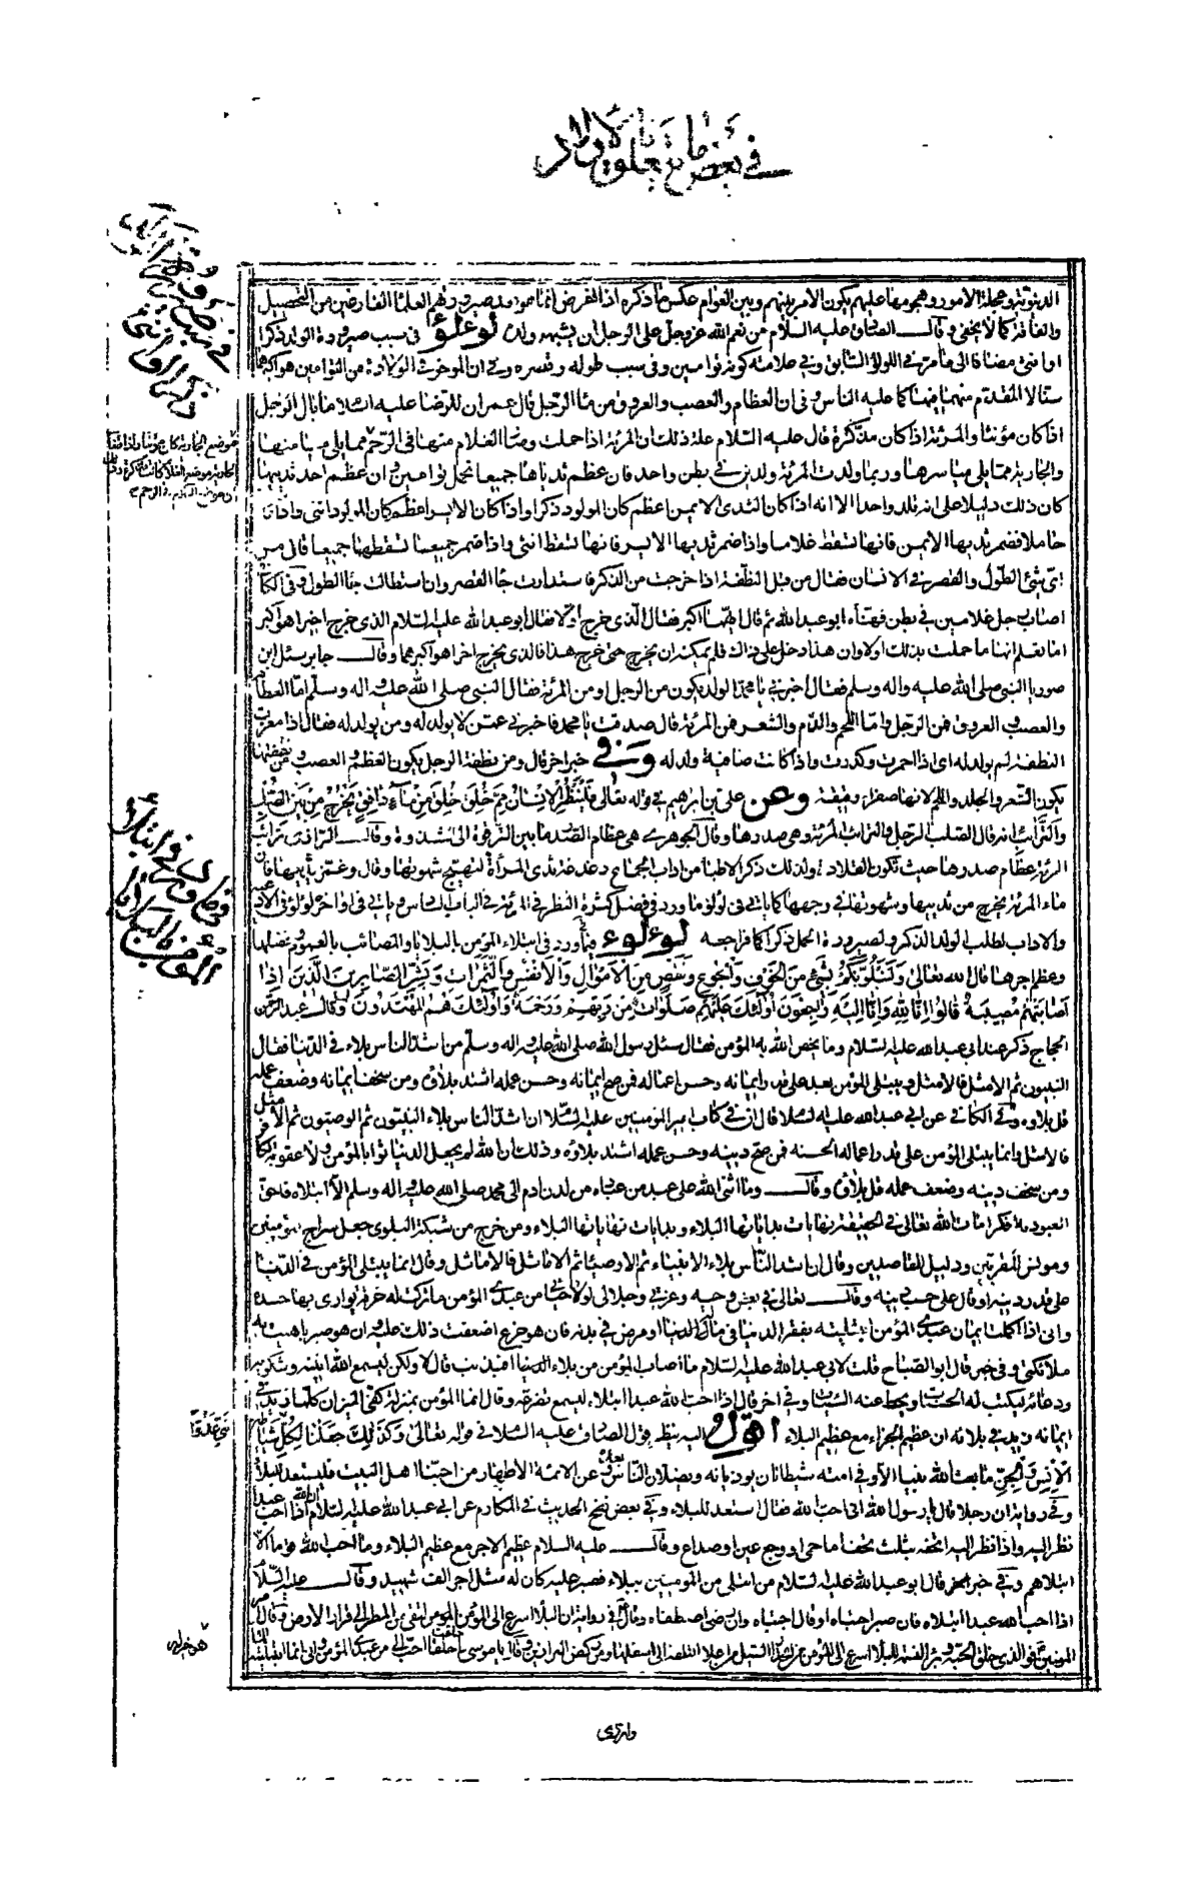 في بعض ما يتعلق بالاولاد
الدينوية وجملة الامور وهجومها عليهم يكون الامر بينهم وبين العوام عكس ما ذكره اذا الغرض انما هو من العلماء الفارغين من التحصيل
كما لا يخفى وقال الصادق عليه السلام من نعم الله عز وجل على الرجل ان يشبهه ولده لؤلؤ في سبب صيرورة الولد ذكرا
او انثى مضافا الى ما مر في اللؤلؤ السابق وفي علامته كونه توامين وفي سبب طوله وقصره وفي ان المؤخر في الولادة من التوامين هو اكبرهما
سنا لا المتقدم منهما كما عليه الناس وفي ان العظام والعصب والعروق من ماء الرجل قال عمران للرضا عليه السلام ما بال الرجل
اذا كان مؤنثا والمرئة اذا كان مذكرة قال عليه السلام علة ذلك ان المرئة اذا حملت وصار الغلام منها في الرحم مما يلي ميامنها
والجارية مما يلي مياسرها وربما ولدت المرئة ولدين في بطن واحد فان عظم ثدياها جميعا تحمل توامين وان عظم احد ثدييها
كان ذلك دليلا على انه تلد واحدا الا انه اذا كان الثدى الايمن اعظم كان المولود ذكرا واذا كان الايسر اعظم كان المولود انثى واذا كانت
حاملا فضمر ثديها الايمن فانها تسقط غلاما واذا ضمر ثديها الايسر فانها تسقط انثى واذا ضمر جميعا تسقطهما جميعا قال من
اى شئ الطول والقصر في الانسان فقال من قبل النطفة اذا خرجت من الذكر فاستدارت جاء القصر وان استطالت جاء الطول وفي الكافي
اصاب رجل غلامين في بطن فهناه ابو عبد الله ثم قال ايهما اكبر فقال الذى خرج اولا فقال ابو عبد الله عليه السلام الذى خرج اخيرا هو اكبر
اما تعلم انها حملت بذلك اولا وان هذا دخل على ذاك فلم يمكنه ان يخرج حتى خرج هذا فالذى يخرج اخرا هو اكبرهما وقال جابر سئل ابن
صوريا النبي صلى الله عليه واله وسلم فقال اخبرني يا محمد الولد يكون من الرجل او من المرئة فقال النبي صلى الله عليه واله وسلم اما العظام
والعصب والعروق فمن الرجل واما اللحم والدم والشعر فمن المرئة قال صدقت يا محمد فاخبرني عمن لا يولد له ومن يولد له فقال اذا مغرت
النطفة لم يولد له اى اذا احمرت وكدرت واذا كانت صافية ولد له وفي خبر اخر قال ومن نطفة الرجل يكون العظم والعصب ومن نطفتها
يكون الشعر والجلد واللحم لانها صفراء رقيقة وعن علي بن ابراهيم في قوله تعالى فلينظر الانسان مم خلق خلق من ماء دافق يخرج من بين الصلب
والترائب انه قال الصلب الرجل والترائب المرئة وهي صدرها وقال الجوهرى هي عظام الصدر ما بين الترقوة الى الثندوة وقال الرازى ترائب
المرئة عظام صدرها حيث تكون القلادة ولذلك ذكر الاطباء من اداب الجماع دغدغة ثدى المرأة لتهيج شهوتها وقال وغمز ثدييها فان
ماء المرئة يخرج من ثدييها وشهوتها في وجهها كما ياتي في لؤلؤ ما ورد في فضل كثرة النظر في المرئة في الباب السادس وياتي في اواخر لؤلؤ في الادعية
والاداب لطلب الولد الذكر ولصيرورة الحمل ذكرا كما فراجعه لؤلؤ فيما ورد في ابتلاء المؤمن بالبلايا والمصائب بالعموم وفضلها
وعظم اجرها قال الله تعالى ولنبلونكم بشئ من الخوف والجوع ونقص من الاموال والانفس والثمرات وبشر الصابرين الذين اذا
اصابتهم مصيبة قالوا انا لله وانا اليه راجعون اولئك عليهم صلوات من ربهم ورحمة واولئك هم المهتدون وقال عبد الرحمن
الحجاج ذكر عند ابي عبد الله عليه السلام وما يخص الله به المؤمن فقال سئل رسول الله صلى الله عليه واله وسلم من اشد الناس بلاء في الدنيا فقال
النبيون ثم الامثل فالامثل ويبتلى المؤمن بعد على قدر ايمانه وحسن اعماله فمن صح ايمانه وحسن عمله اشتد بلاؤه ومن سخف ايمانه وضعف عمله
قل بلاؤه وفي الكافي عن ابي عبد الله عليه السلام قال ان في كتاب امير المؤمنين عليه السلام ان اشد الناس بلاء النبيون ثم الوصيون ثم الامثل
فالامثل وانما يبتلى المؤمن على قدر اعماله الحسنه فمن صح دينه وحسن عمله اشتد بلاؤه وذلك ان الله لم يجعل الدنيا ثوابا لمؤمن ولا عقوبة لكافر
ومن سخف دينه وضعف عمله قل بلاؤه وقال وما اثنى الله على عبد من عباده من لدن ادم الى محمد صلى الله عليه واله وسلم الا بعد ابتلاءه
العبودية فكرامات الله تعالى في الحقيقة نهايات بداياتها البلاء وبدايات نهاياتها البلاء ومن خرج من شبكة البلوى جعل سراج المؤمنين
ومونس المقربين ودليل القاصدين وقال ان اشد الناس بلاء الانبياء ثم الاوصياء ثم الاماثل فالاماثل وقال انما يبتلى المؤمن في الدنيا
على قدر دينه او قال على حسب دينه وقال تعالى في بعض وحيه وعزتي وجلالى لولا حيائي من عبدى المؤمن ما تركت له خرقة يوارى بها جسده
واني اذا اكملت ايمان عبدى المؤمن ابتليته بفقر الدنيا في ماله او مرض في بدنه فان هو جزع اضعفت ذلك عليه وان هو صبر باهيت به
ملائكتي وفي خبر قال ابو الصباح قلت لابي عبد الله عليه السلام ما اصاب المؤمن من بلاء الدنيا افبذنب قال لا ولكن ليسمع الله انينه وشكواه
ودعائه ليكتب له الحسنات ويحط عنه السيئات وفي اخر قال اذا احب الله عبدا ابتلاه ليسمع تضرعه وقال انما المؤمن بمنزلة كفتي الميزان كلما زيد في
ايمانه زيد في بلائه ان عظيم الجزاء مع عظيم البلاء اقول اليه ينظر قول الصادق عليه السلام في قوله تعالى وكذلك جعلنا لكل نبي
الانس والجن ما بعث الله نبيا الا وفي امته شيطانان يوذيانه ويضلان الناس بعده وعن الائمة الاطهار من احبنا اهل البيت فليستعد للبلاء
وفي رواية ان رجلا قال يا رسول الله اني احب الله فقال استعد للبلاء وفي بعض نسخ الحديث في المكارم عن ابي عبد الله عليه السلام ان الله اذا احب عبدا
نظر اليه واذا نظر اليه اتحفه بثلث تحف اما حمى او وجع عين او صداع وقال عليه السلام عظيم الاجر مع عظيم البلاء وما احب الله قوما الا
ابتلاهم وفي خبر اخر قال ابو عبد الله عليه السلام من ابتلى من المؤمنين ببلاء فصبر عليه كان له مثل اجر الف شهيد وقال عليه السلام
اذا احب الله عبدا ابتلاه فان صبر اجتباه او قال اجتباه وان رضى اصطفاه وقال في رواية ان البلاء اسرع الى المؤمن التقى من المطر الى قرار الارض وقال
في بعض صيرورة الولد ذكرا او انثى
موضع الجارية
فيما ورد في ابتلاء المؤمن بالبلايا
نبي عدوا
وارزى